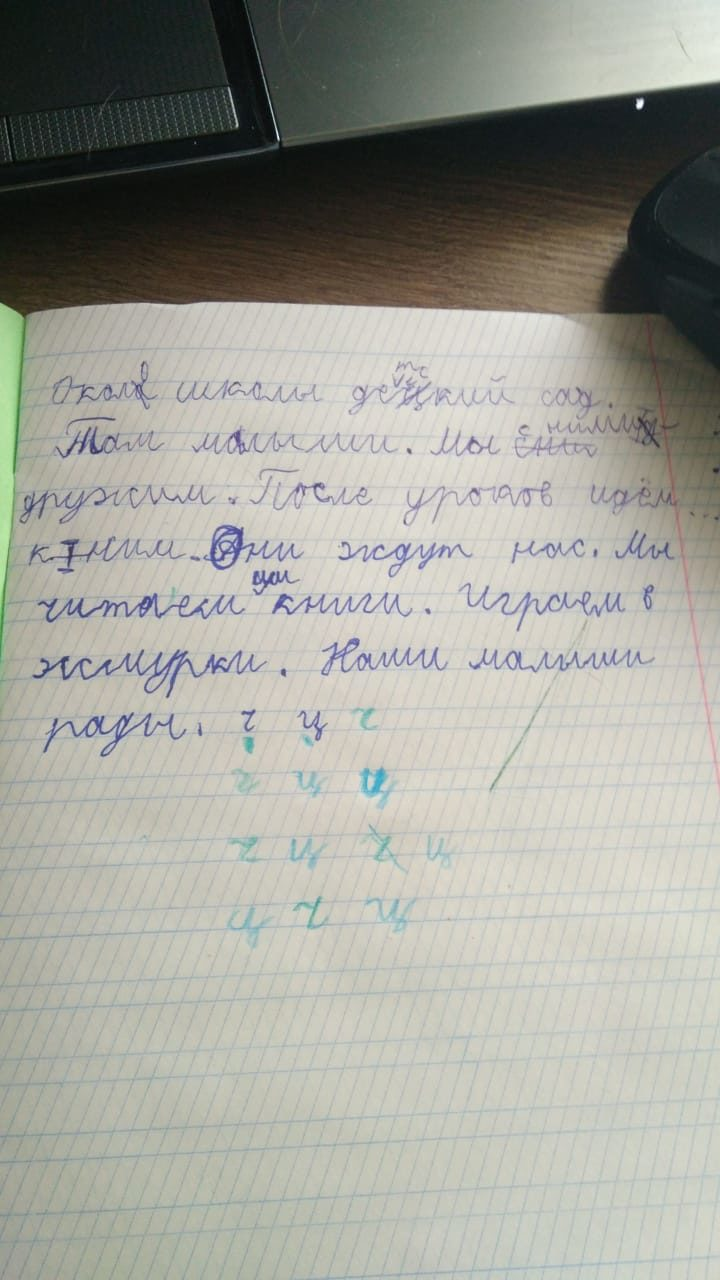 Около школы детский сад.
Там малыши. Мы с ними
дружим. После уроков идём
к ним. Они ждут нас. Мы
читаем им книги. Играем в
жмурки. Наши малыши
рады. ч ц ч